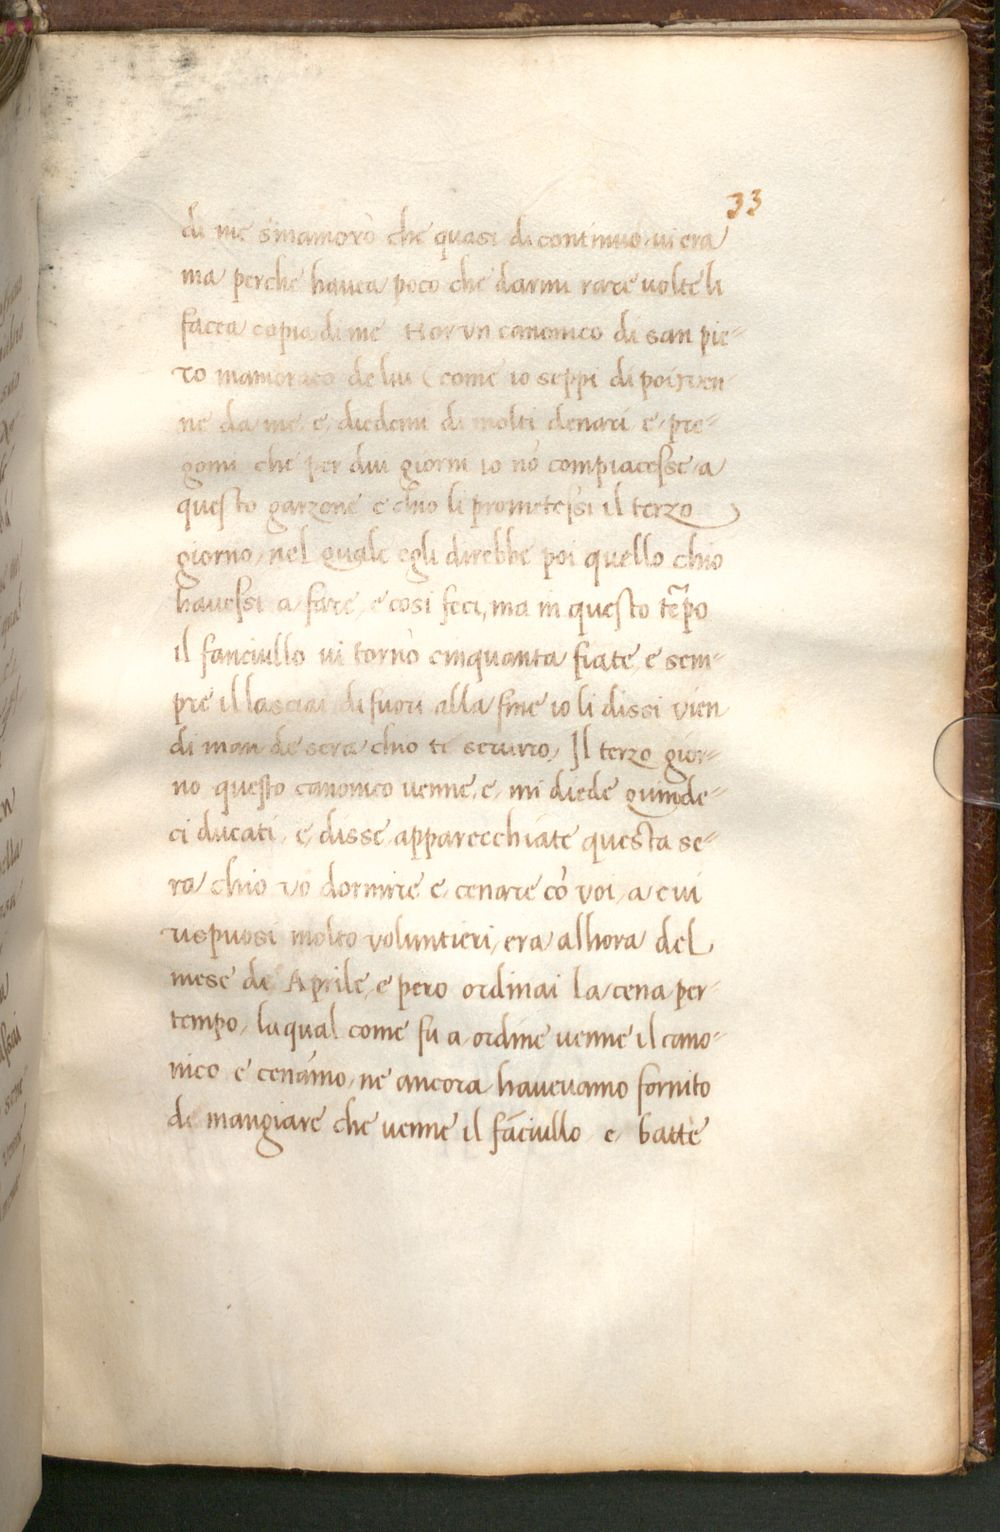 33
di me s'inamorò che quasi di continuo vi era
ma perche havea poco che darmi rare volte li
facea copia di me Hor vn canonico di san pie-
ro inamorato de lui (come io seppi di poi) ven-
ne da me, e, diedemi di molti denari, e, pre-
gomi che per dui giorni io nõ compiacesse a
questo garzone e chio li promettessi il terzo
giorno, nel quale egli direbbe poi quello chio
havessi a fare, e cosi feci, ma in questo tẽpo
il fanciullo vi tornò cinquanta fiate, e sem-
pre il lasciai di fuori alla fine io li dissi vien
di man de sera chio te serviro, Il terzo gior-
no questo canonico venne, e, mi diede quinde-
ci ducati, e, disse apparecchiate questa se-
ra chio vo dormire e cenare cõ voi, a cui
rispuosi molto voluntieri, era alhora del
mese de Aprile, e pero ordinai la cena per
tempo, la qual come fu a ordine venne il cano-
nico e cenámo, ne ancora havevamo fornito
de mangiare che venne il fãciullo e, batte